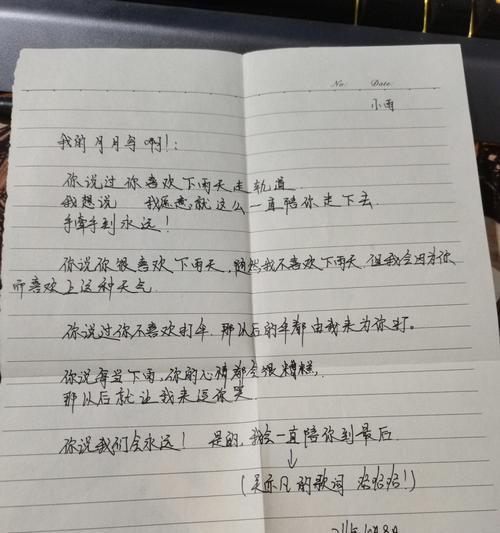 No.    Date.
小雨
我的月月每啊!:
你说过你喜欢下雨天走轨道
我想说 我愿意就这么一直陪你走下去
手牵手到永远!
你说你很喜欢下雨天,随然我不喜欢下雨天.但我会因为你
而喜欢上这种天气
你说过你不喜欢打伞.那以后的伞都由我来为你打。
你说每当下雨,你的心情都会很糟糕.
那以后就让我来逗你笑
你说我们会永远! 是的,我会一直陪你到最后.
↓
(吴亦凡的歌词 哈哈哈!)